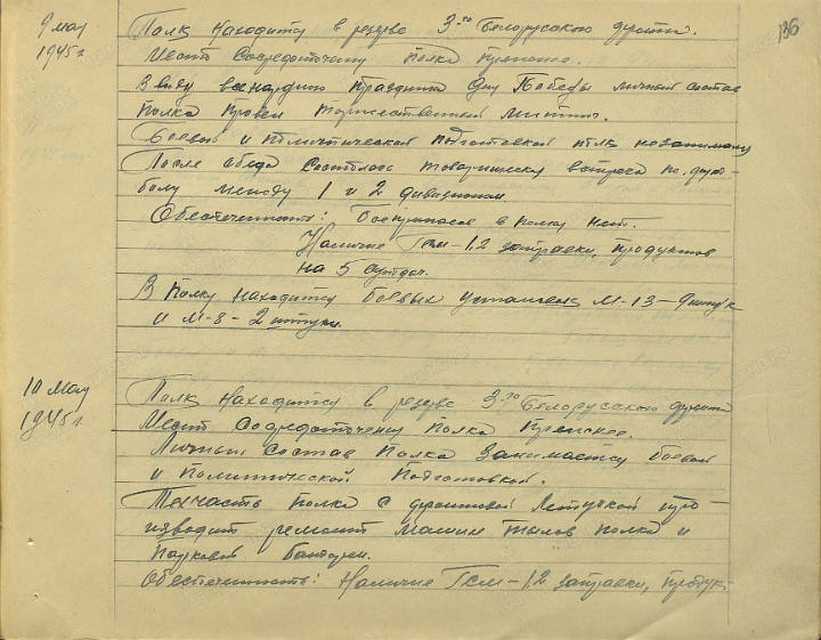 136
9 мая
1945 г
Полк находится в резерве 3-го Белорусского фронта.
Место сосредоточения полка
В виду всенародного праздника дня Победы личный состав
полка провел торжественный митинг.
Боевой и политической подготовкой полк не занимался
После обеда состоялась товарищеская встреча по фут-
болу между 1 и 2 дивизионами.
Обеспеченность: Боеприпасов в полку нет.
Наличие Гсм – 1,2 заправки, продуктов
на 5 сутдач.
В полку находится боевых установок М-13 – 9 штук
и М-8 – 2 штуки.
10 мая
1945 г.
Полк находится в резерве 3-го Белорусского фронта
Место сосредоточения полка
Личный состав полка занимается боевой
и политической подготовкой.
Техчасть полка с фронтовой летучкой про-
изводит ремонт машин тылов полка и
парковой батареи.
Обеспеченность: Наличие Гсм – 1,2 заправки, продук